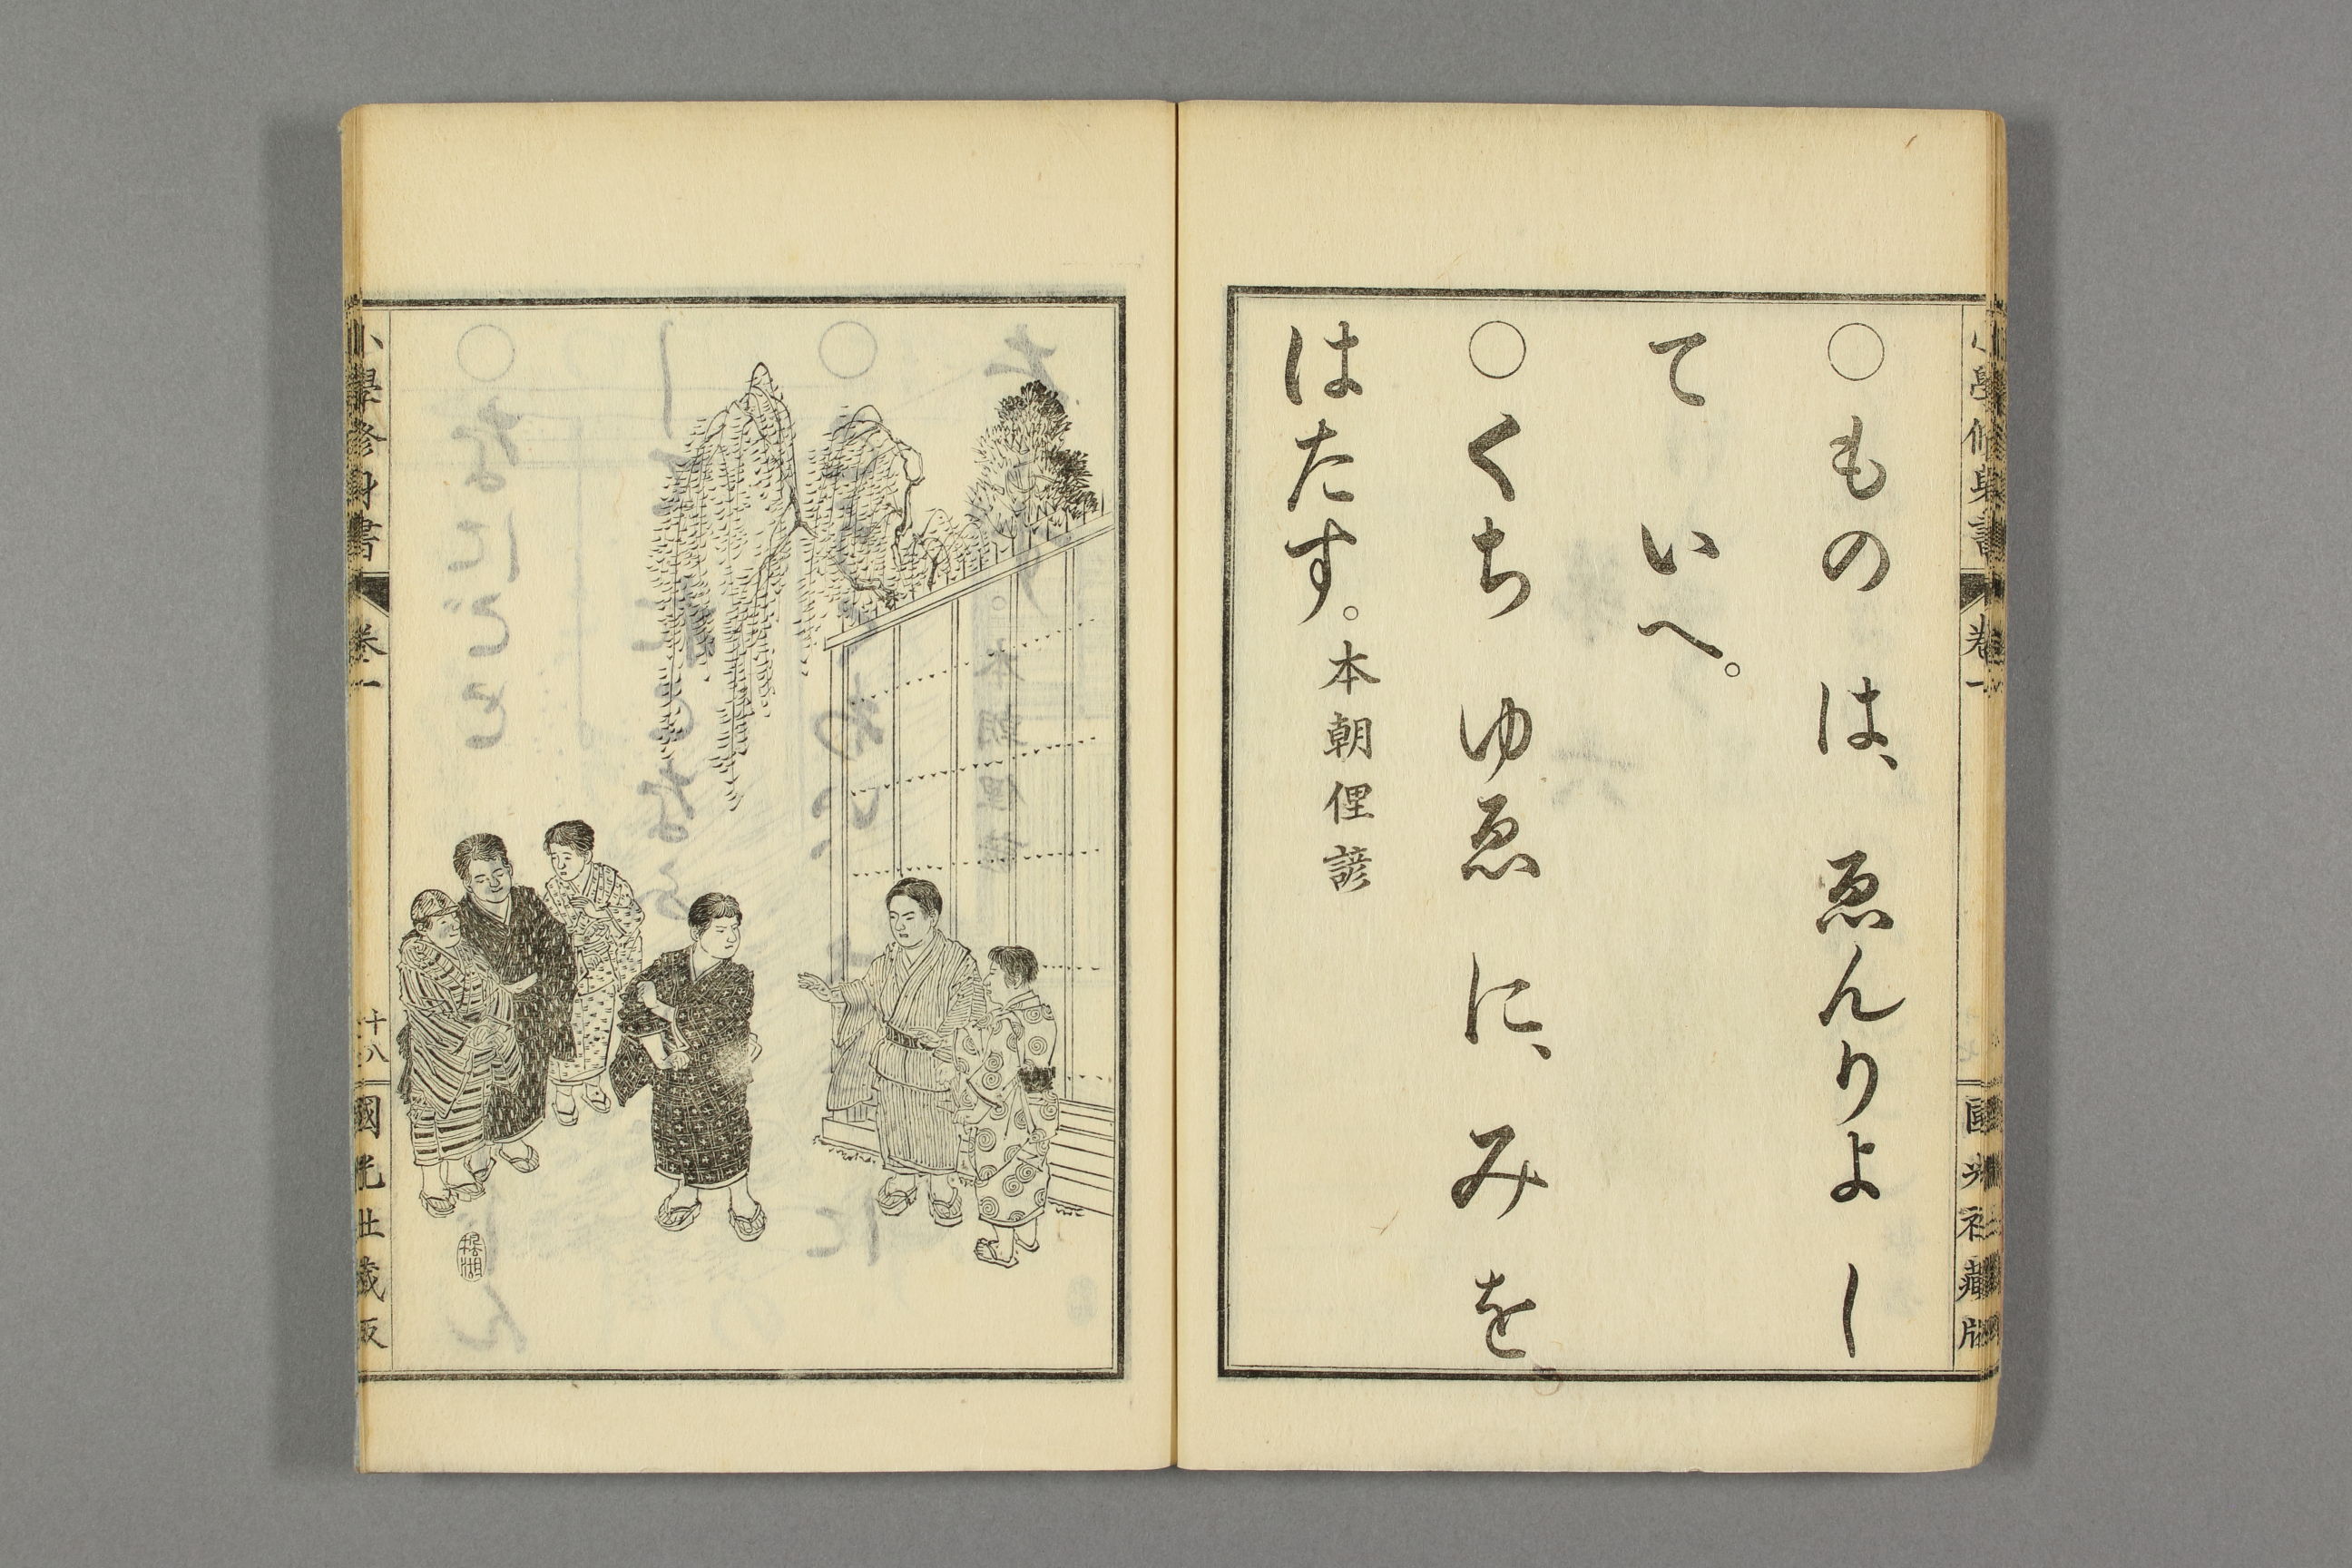 小學修身書 卷一 國光社藏版
○もの は、ゑんりよ し
て いへ。
○くち ゆゑ に、みを
はたす。本朝俚諺
小學修身書 卷一 十八 國光社藏版